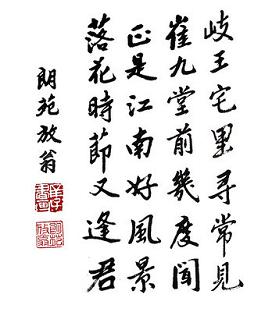 岐王宅里尋常見
崔九堂前幾度聞
正是江南好風景
落花時節又逢君
朗苑放翁